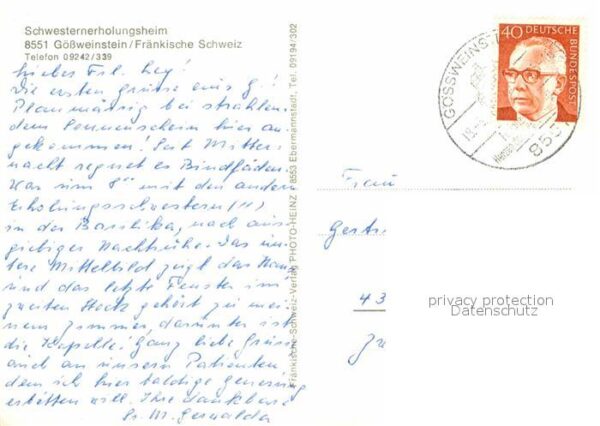 Schwesternerholungsheim
8551 Gößweinstein/Fränkische Schweiz
Telefon 09242/339
Liebes Frl. Ley!
Die ersten Grüsse aus G!
Planmässig bei strahlen-
dem Sonnenschein hier an-
gekommen! Seit Mitter-
nacht regnet es Bindfäden.
War um 8 mit den anderen
Erholungsschwestern (11)
in der Basilika, nach aus-
giebiger Nachtruhe. Das un-
tere Mittelbild zeigt das Haus
und das letzte Fenster im
zweiten Stock gehört zu mei-
nem Zimmer, darunter ist
die Kapelle. Ganz liebe Grüsse
auch an unsern Patienten,
dem ich hier baldige Genesung
erbitten will. Ihre dankbare
Sr. M. Gerwalda
Fränkische-Schweiz-Verlag PHOTO-HEINZ · 8553 Ebermannstadt, Tel. 09194/302
GÖSSWEINSTEIN
855
40 DEUTSCHE BUNDESPOST
Frau
Gertr
43
privacy protection
Datenschutz